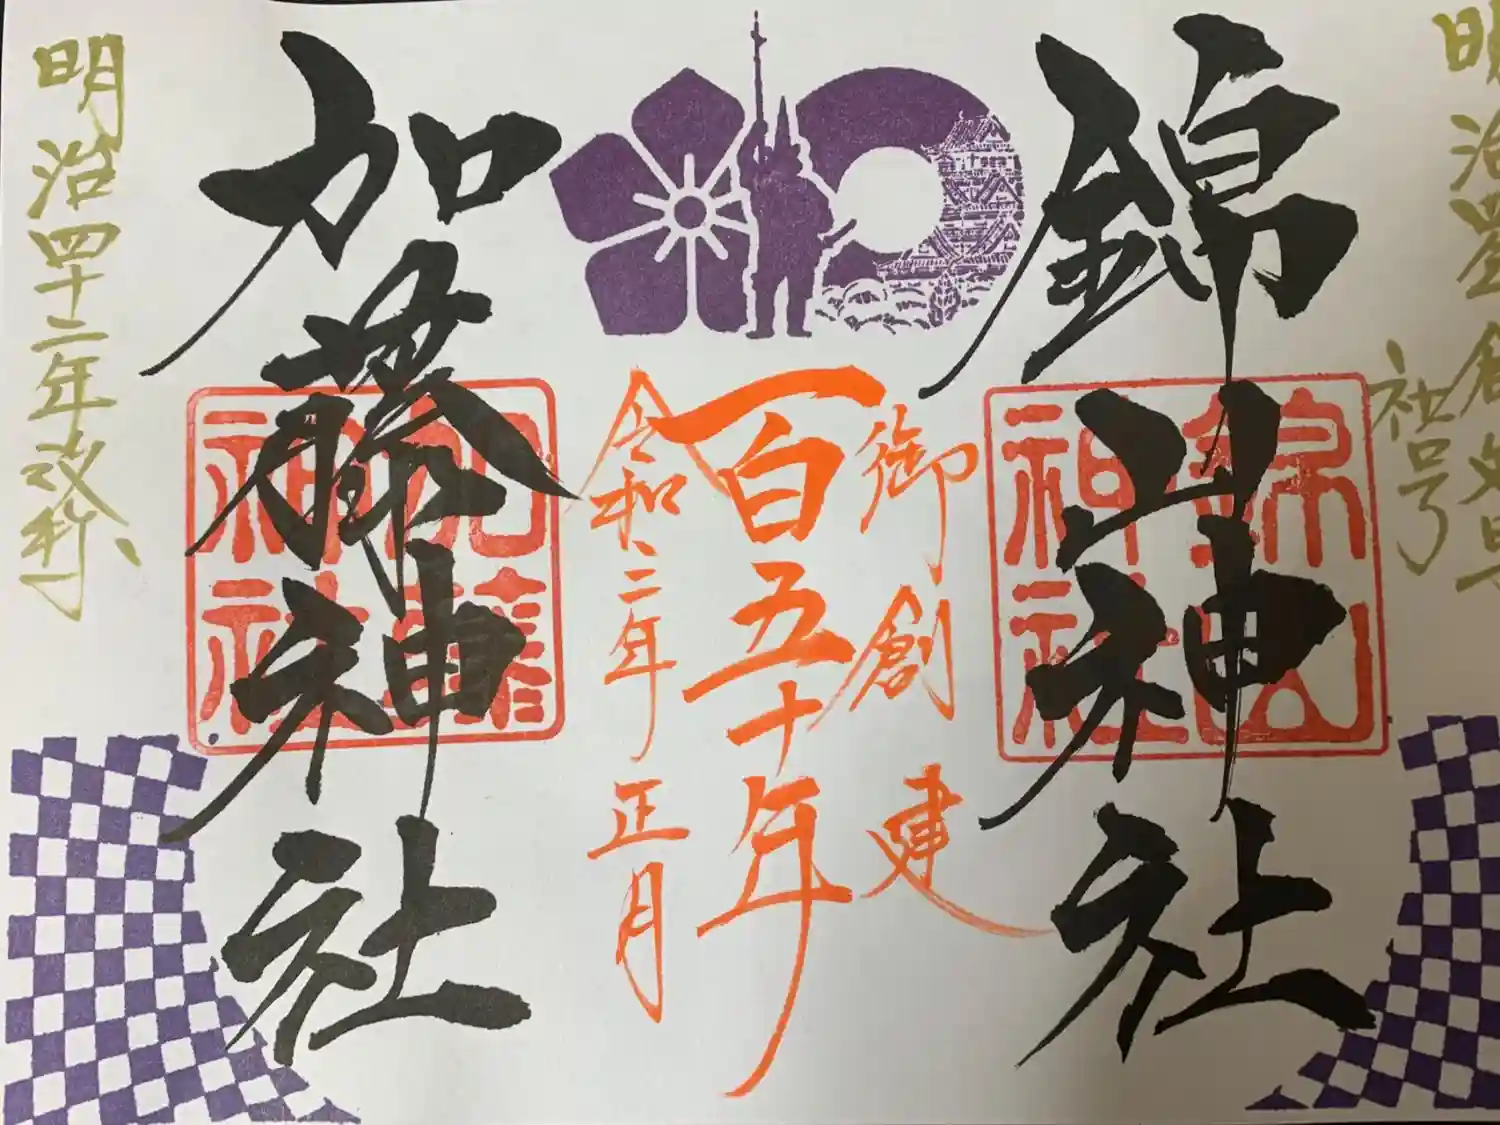 明治
社号
錦山神社
錦山神社
御創建
百五十年
令和二年正月
加藤神社
加藤神社
明治四十二年改称